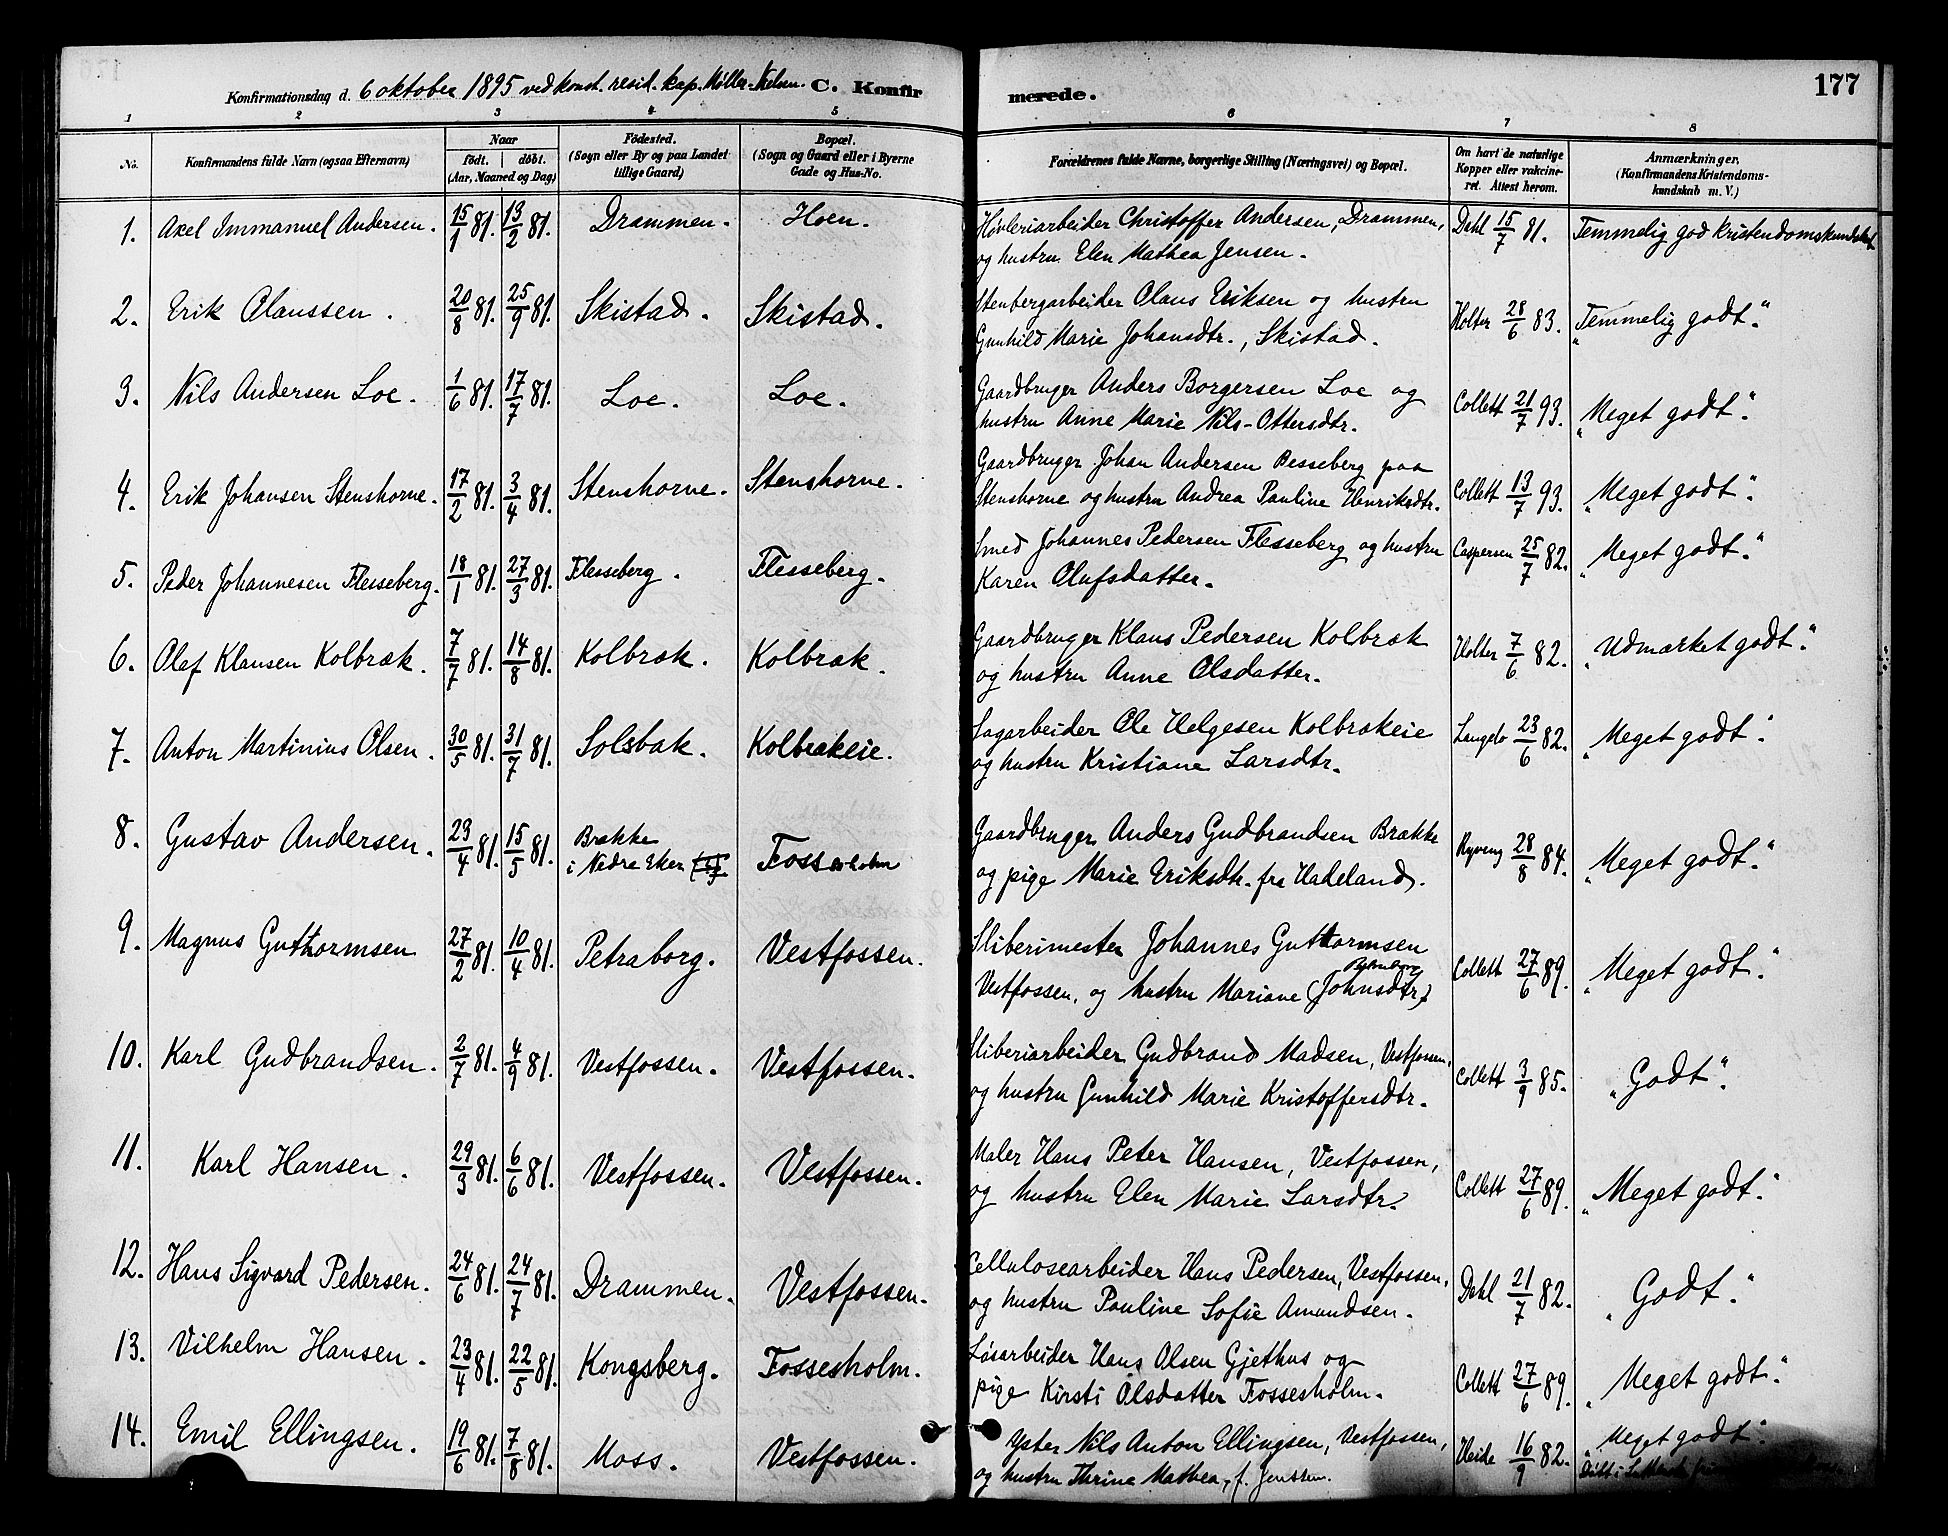 177
Konfirmationsdag d. 6 oktober 1895 ved konst. resid. kap. Møller-Nielsen. C. Konfirmerede.
1 2 3 4 5 6 7 8
No. Konfirmandens fulde Navn (ogsaa Efternavn) Naar født. døbt. (Aar, Maaned og Dag) Fødested. (Sogn eller By og paa Landet tillige Gaard) Bopæl. (Sogn og Gaard eller i Byerne Gade og Hus-No. Forældrenes fulde Navne, borgerlige Stilling (Næringsvei) og Bopæl. Om havt de naturlige Kopper eller vakcineret. Attest herom. Anmærkninger. (Konfirmandens Kristendomskundskab m. V.)
1. Axel Immanuel Andersen. 15/1 81. 13/2 81. Drammen. Hoen. Høvleriarbeider Christoffer Andersen, Drammen, Dahl 15/7 81. Temmelig god kristendomskundskab
og hustru Elen Mathea Jensen.
2. Erik Olaussen. 20/8 81. 25/9 81. Skistad. Skistad. Stenbergarbeider Olaus Eriksen og hustru Holter 28/6 83. "Temmelig godt."
Gunhild Marie Johansdtr., Skistad.
3. Nils Andersen Loe. 1/6 81. 17/7 81. Loe. Loe. Gaardbruger Anders Borgersen Loe og Collett 21/7 93. "Meget godt."
hustru Anne Marie Nils-Ottersdtr.
4. Erik Johansen Stenshorne. 17/2 81. 3/4 81. Stenshorne. Stenshorne. Gaardbruger Johan Andersen Besseberg paa Collett 13/7 93. "Meget godt."
Stenshorne og hustru Andrea Pauline Henriksdtr.
5. Peder Johannesen Flesseberg. 18/1 81. 27/3 81. Flesseberg. Flesseberg. Smed Johannes Pedersen Flesseberg og hustru Caspersen 25/7 82. "Meget godt."
Karen Olufsdatter.
6. Olaf Klausen Kolbræk. 7/7 81. 14/8 81. Kolbræk. Kolbræk. Gaardbruger Klaus Pedersen Kolbræk Holter 7/6 82. "Udmærket godt."
og hustru Anne Olsdatter.
7. Anton Martinius Olsen. 30/5 81. 31/7 81. Solsbak. Kolbrækeie. Sagarbeider Ole Helgesen Kolbrækeie 23/6 82. "Meget godt."
og hustru Kristiane Larsdtr.
8. Gustav Andersen. 23/4 81. 15/5 81. Brække i Nedre Eker Fossesholm Gaardbruger Anders Gudbrandsen Brække Ryveng 28/8 84. "Meget godt."
og pige Marie Eriksdtr. fra Hadeland.
9. Magnus Guttormsen 27/2 81. 10/4 81. Petraborg. Vestfossen. Sliberimester Johannes Guttormsen Collett 27/6 89. "Meget godt."
Vestfossen, og hustru Mariane (Johnsdtr.)
10. Karl Gudbrandsen. 2/7 81. 4/9 81. Vestfossen. Vestfossen. Sliberiarbeider Gudbrand Madsen, Vestfossen, Collett 3/9 85. "Godt".
og hustru Gunhild Marie Kristoffersdtr.
11. Karl Hansen. 29/3 81. 6/6 81. Vestfossen. Vestfossen. Maler Hans Peter Hansen, Vestfossen, Collett 27/6 89. "Meget godt."
og hustru Elen Marie Larsdtr.
12. Hans Sigvard Pedersen. 24/6 81. 24/7 81. Drammen. Vestfossen. Cellulosearbeider Hans Pedersen, Vestfossen, Dahl 21/7 82. "Godt."
og hustru Pauline Sofie Amundsen.
13. Vilhelm Hansen. 23/4 81. 22/5 81. Kongsberg. Fossesholm. Løsarbeider Hans Olsen Gjethus og Collett 27/6 89. "Meget godt."
pige Kirsti Olsdatter Fossesholm.
14. Emil Ellingsen. 19/6 81. 7/8 81. Moss. Vestfossen. Yster Nils Anton Ellingsen, Vestfossen, Heide 16/9 82. "Meget godt."
og hustru Thrine Mathea, f. Jenssen.